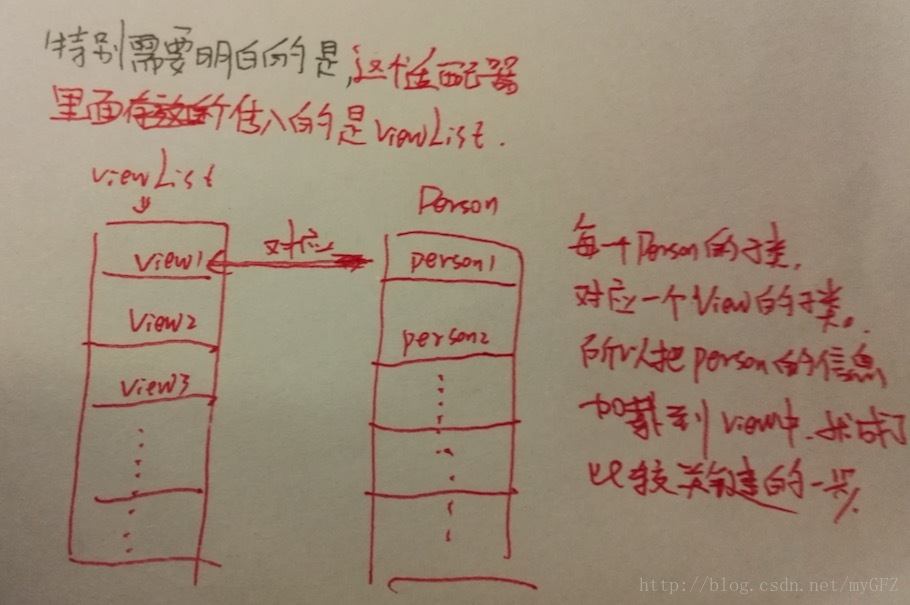 特别需要明白的是,这个适配器
里面存放的传入的是viewList.
viewList
Person
对应
view1
person1
View2
person2
view3
每一个Person的子类,
对应一个View的子类。
所以把person的信息
加载到view中,就成了
比较关键的一点.
http://blog.csdn.net/myGFZ